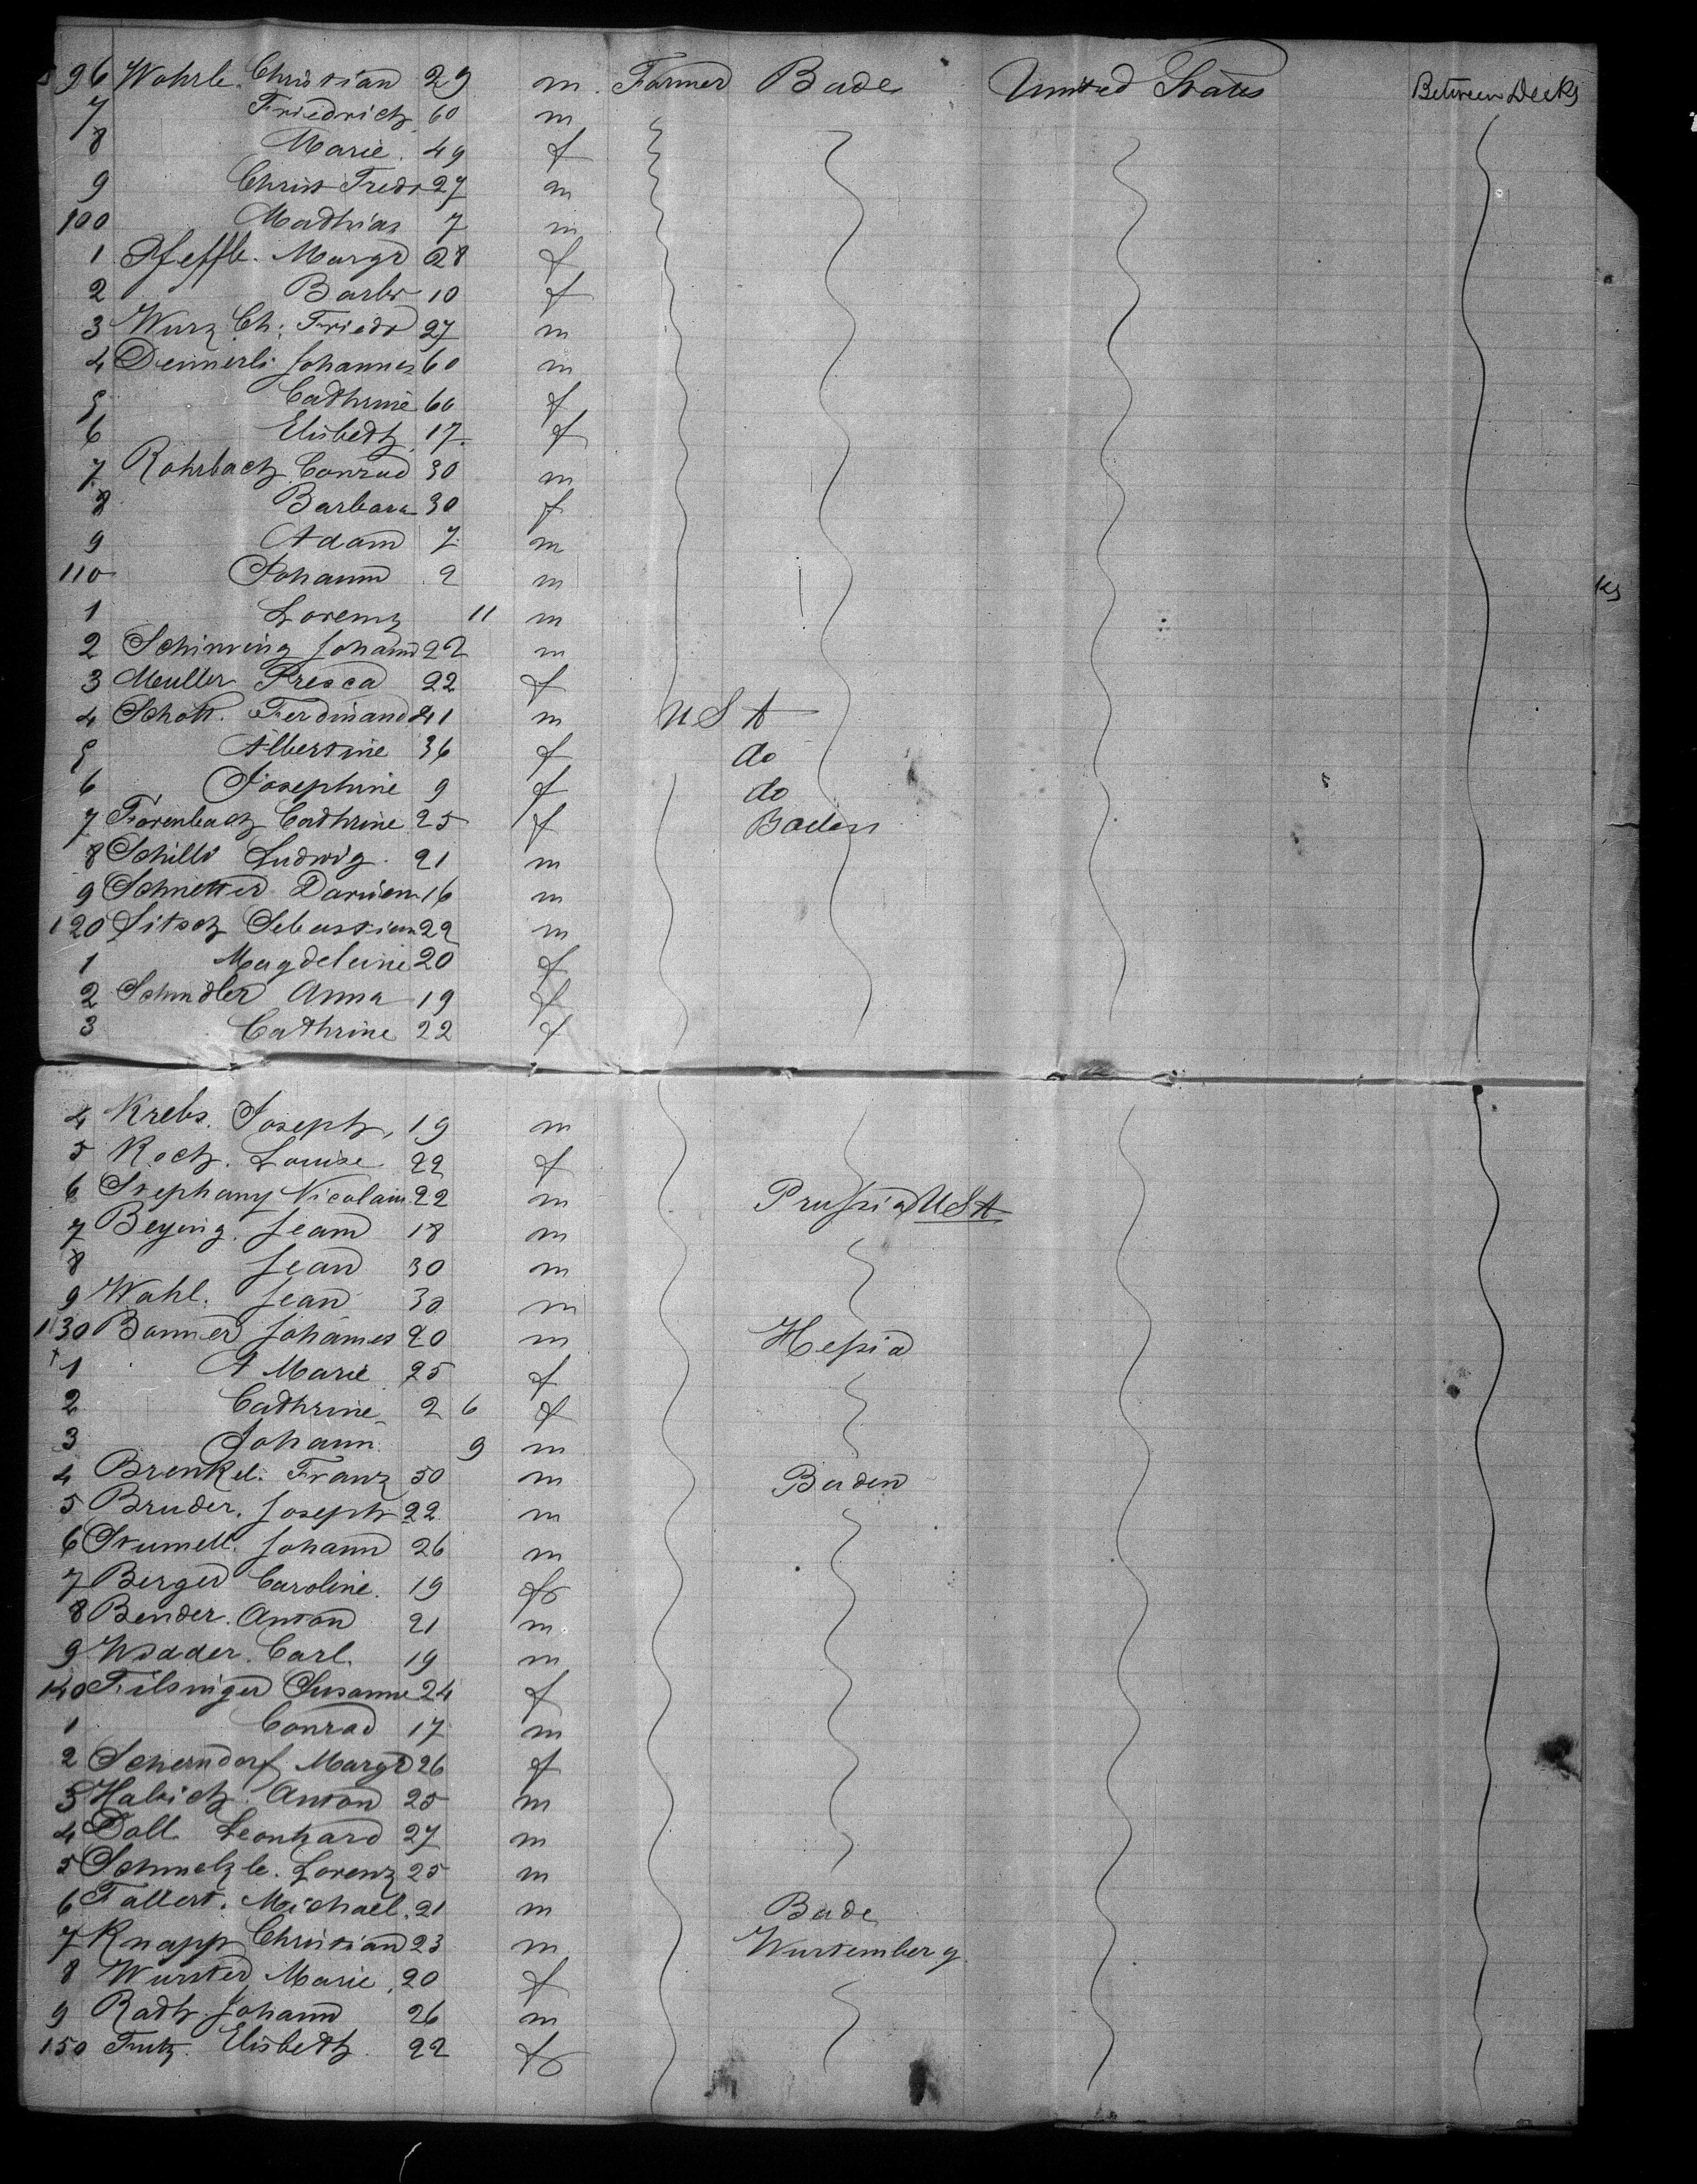 96 Wohrle. Christian 29 m. Farmer Bade United States Between Decks
7 Friedrich 60 m
8 Marie. 49 f
9 Christ Fredr 27 m
100 Mathias 7 m
1 Pfeffle. Margt 28 f
2 Barbr 10 f
3 Wurz Ch: Friedr 27 m
4 Dennerli Johannes 60 m
5 Cathrine 60 f
6 Elisbeth 17 f
7 Rohrbach Conrad 30 m
8 Barbara 30 f
9 Adam 7 m
110 Johann 2 m
1 Lorenz 11 m
2 Johann 22 m
3 Muller Fresca 22 f
4 Schott. Ferdinand 41 m U S A
5 Albertine 36 f do
6 Josephine 9 f do
7 Forenbach Cathrine 25 f Baden
8 Schilli Ludwig. 21 m
9 Schnetter 16 m
120 Litsch Sebastian 22 m
1 Magdeleine 20 f
2 Schindler Anna 19 f
3 Cathrine 22 f
4 Krebs. Joseph, 19 m
5 Koch. Louise 22 f
6 Stephany Nicolaus 22 m Prussia USA
7 Beying. Jean 18 m
8 Jean 30 m
9 Wahl. Jean 30 m
130 Bonner Johannes 20 m Hessia
1 A Marie 25 f
2 Cathrine 2 6 f
3 Johann 9 m
4 Brenkel. Franz 50 m Baden
5 Bruder. Joseph 22 m
6 Johann 26 m
7 Berger Caroline. 19 f
8 Bender. Anton 21 m
9 Carl. 19 m
140 Filsinger Susanne 24 f
1 Conrad 17 m
2 Scherndorf Margt 26 f
3 Habich. Anton 25 m
4 Doll Leonhard 27 m
5 Schmelzle. Lorenz 25 m
6 Fallert. Michael. 21 m Bade
7 Knapp Christian 23 m Wurtemberg
8 Wurster Marie, 20 f
9 Rath. Johann 26 m
150 Elisbeth. 22 f